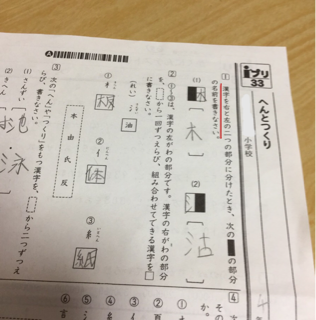 iプリ
33
へんとつくり
小学校
1 漢字を右と左の二つの部分に分けたとき、次の■の部分
の名前を書きなさい。
(1)
木
(2)
2 ①~③は、漢字の左がわの部分です。漢字の右がわの部分
を、から一回ずつえらび、組み合わせてできる漢字を□
に書きなさい。
(れい) 油
① 木 板
② イ 体
③ 糸 紙
本 由 氏 反
3 次の「へん」や「つくり」をもつ漢字を、から二つずつえ
らび、書きなさい。
(1) さんずい
池・泳
(2) きへん
4 次
その
か。